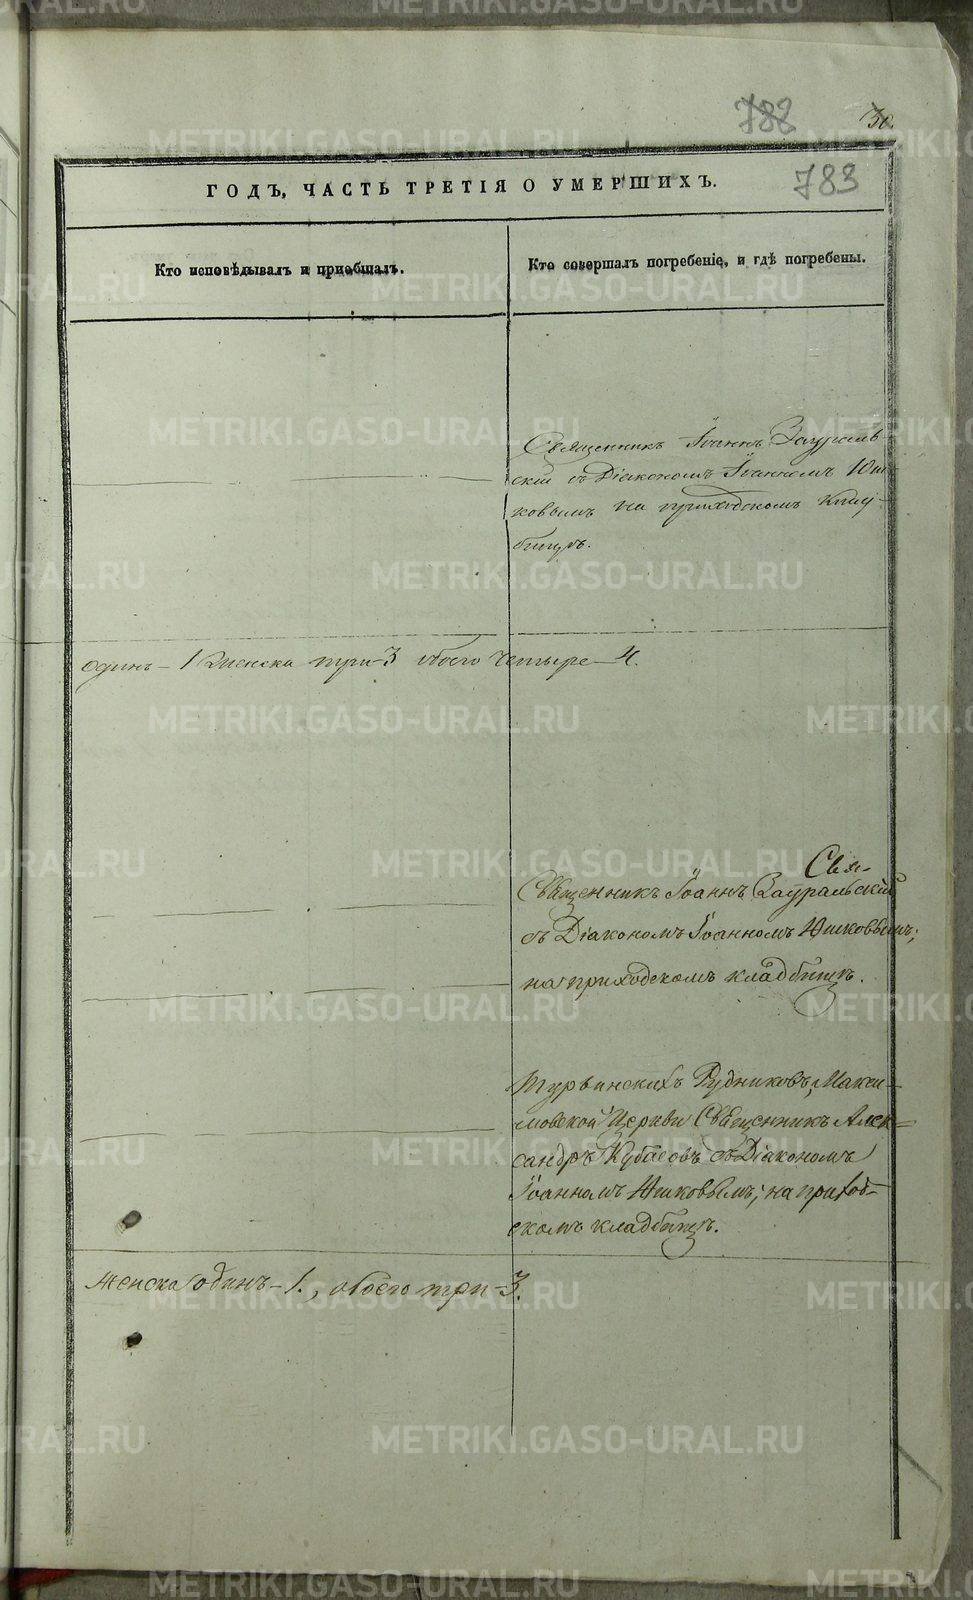 788
30.
783
ГОДЪ, ЧАСТЬ ТРЕТІЯ О УМЕРШИХЪ.
Кто исповѣдывалъ и пріобщалъ.
Кто совершалъ погребеніе, и гдѣ погребены.
Священникъ Іоаннъ Заураль-
скій съ Діакономъ Іоанномъ Юш-
ковымъ на приходскомъ клад-
бищѣ.
одинъ - 1 женска три - 3 обоего четыре - 4.
Свя-
Священникъ Іоаннъ Зауральскій
съ Діакономъ Іоанномъ Юшковымъ;
на приходскомъ кладбищѣ.
Турьинскихъ Рудниковъ, Макси-
мовской Церкви Священникъ Алек-
сандръ съ Діакономъ
Іоанномъ Юшковымъ; на приход-
скомъ кладбищѣ.
женска одинъ - 1., обоего три - 3.
METRIKI.GASO-URAL.RU